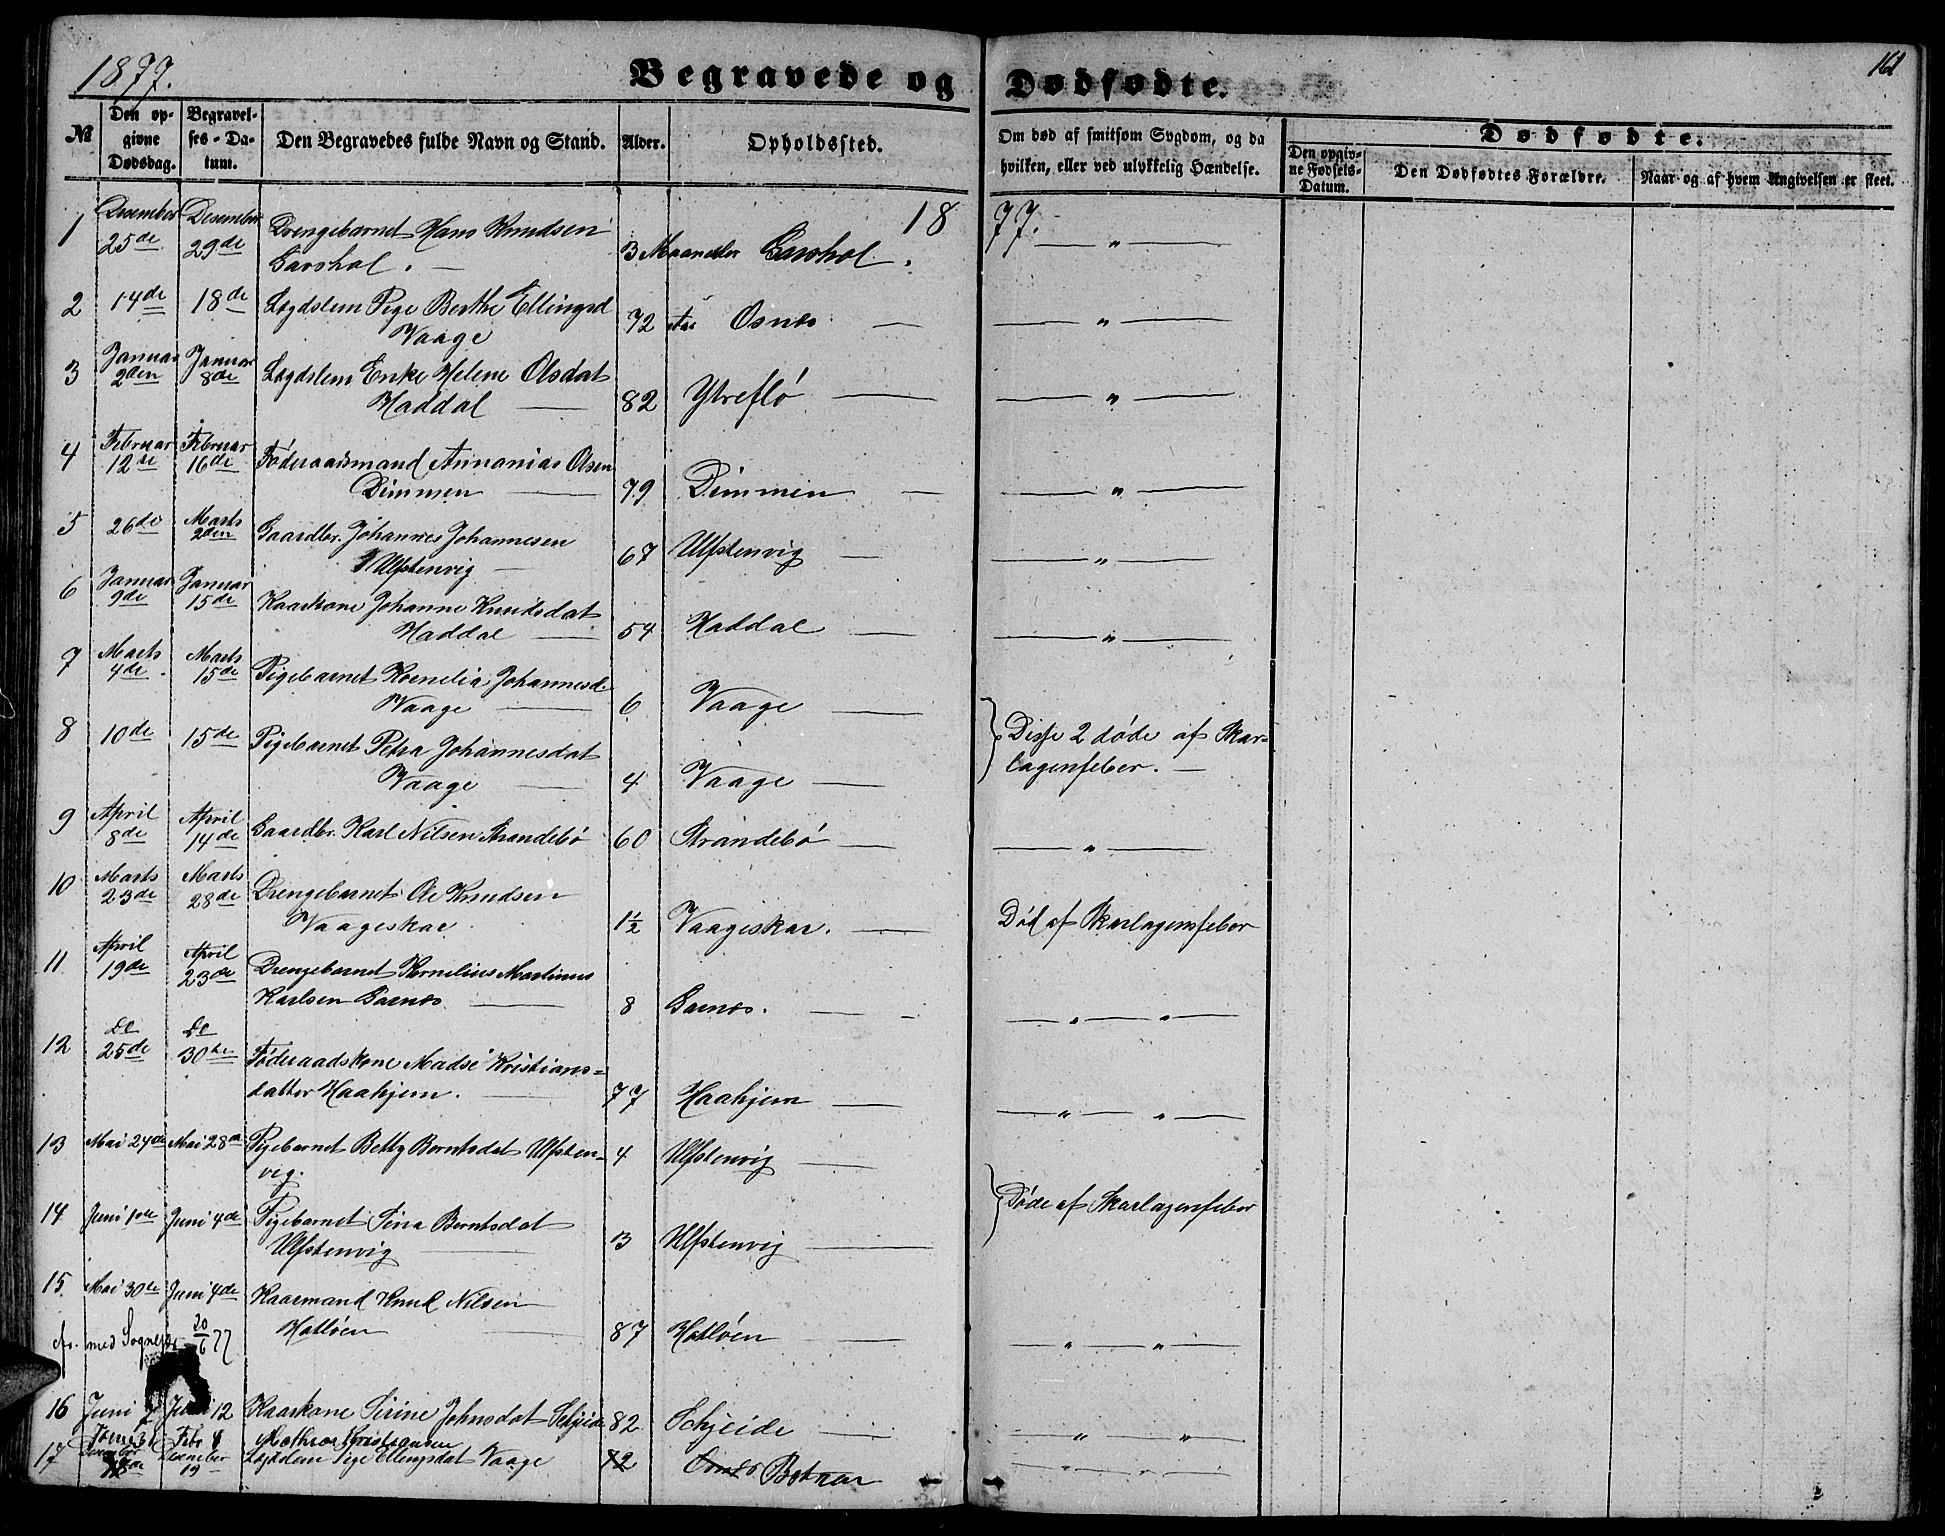 1877.
Begravede og Dødfødte.
161
№
Den op-
givne
Dødsdag.
Begravel-
ses-Da-
tum.
Den Begravedes fulde Navn og Stand.
Alder.
Opholdssted.
Om død af smitsom Sygdom, og da
hvilken, eller ved ulykkelig Hændelse.
Dødfødte.
Den opgiv-
ne Fødsels-
Datum.
Den Dødfødtes Forældre.
Naar og af hvem Angivelsen er skeet.
1877.
1 Desember 25de Desember 29de Drengebarnet Hans Knudsen
Garshol. — 3 Maaneder Garshol. — " —
2 14de 18de Lægdslem Pige Berthe Ellingsd
Vaage 72 Aar Osnes — — " —
3 Januar 2den Januar 8de Lægdslem Enke Helene Olsdat
Haddal — 82 Ytreflø — — " —
4 Februar 12te Februar 16de Føderaadsmand Annanias Olsen
Dimmen — 79 Dimmen — — " —
5 26de Marts 2den Gaardbr. Johannes Johannesen
Ulfstenvig — 67 Ulfstenvig — — " —
6 Januar 9de Januar 15de Kaarkone Johanne Knudsdat
Haddal — 54 Haddal — — " —
7 Marts 4de. Marts 15de Pigebarnet Kornelia Johannesd.
Vaage — 6 Vaage —
8 10de 15de Pigebarnet Petra Johannesdat
Vaage — 4 Vaage —
Disse 2 døde af Skar-
lagensfeber. —
9 April 8de April 14de Gaardbr. Karl Nilsen Strandebø 60 Strandebø — — " —
10 Marts 23de Marts 28de Drengebarnet Ole Knudsen
Vaageskar 1½ Vaageskar. — Død af Skarlagensfeber
11 April 19de April 23de Drengebarnet Kornelius Martinus
Karlsen Garnes — 8 Garnes. — — " — " —
12 Do 25de Do 30te Føderaadskone Madse Kristians=
datter Haahjem. — 77 Haahjem — — " — " —
13 Mai 24de Mai 28de Pigebarnet Betty Berntsdat Ulfsten=
vig. 4 Ulfstenvig —
14 Juni 1ste Juni 4de Pigebarnet Sina Berntsdat
Ulfstenvig — 3 Ulfstenvig —
Døde af Skarlagensfeber
15. Mai 30te Juni 4de Kaarmand Knud Nilsen
Hatløen — 87 Hatløen — — " — " —
med 20/6 77
16 Juni 7 Juni 12 Kaarkone Sirine Johnsdat Schjeide 82 Schjeide — — " — " —
Febr 4
17 Desember Desember 19 Lægdslem Pige Ellingsdat Vaage 72 Osnes Botnen — " — " —